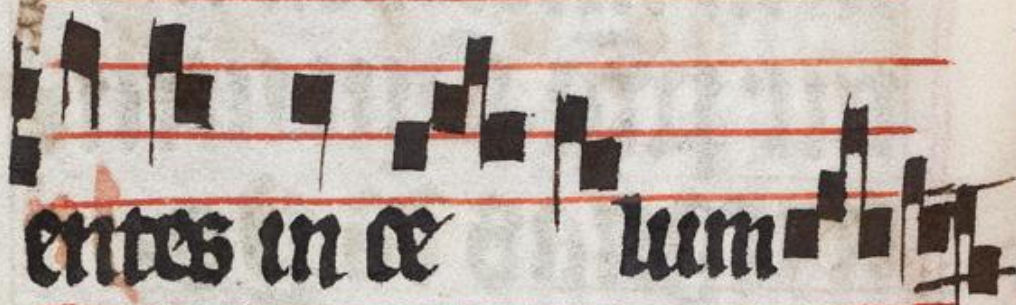 entes in ce lum